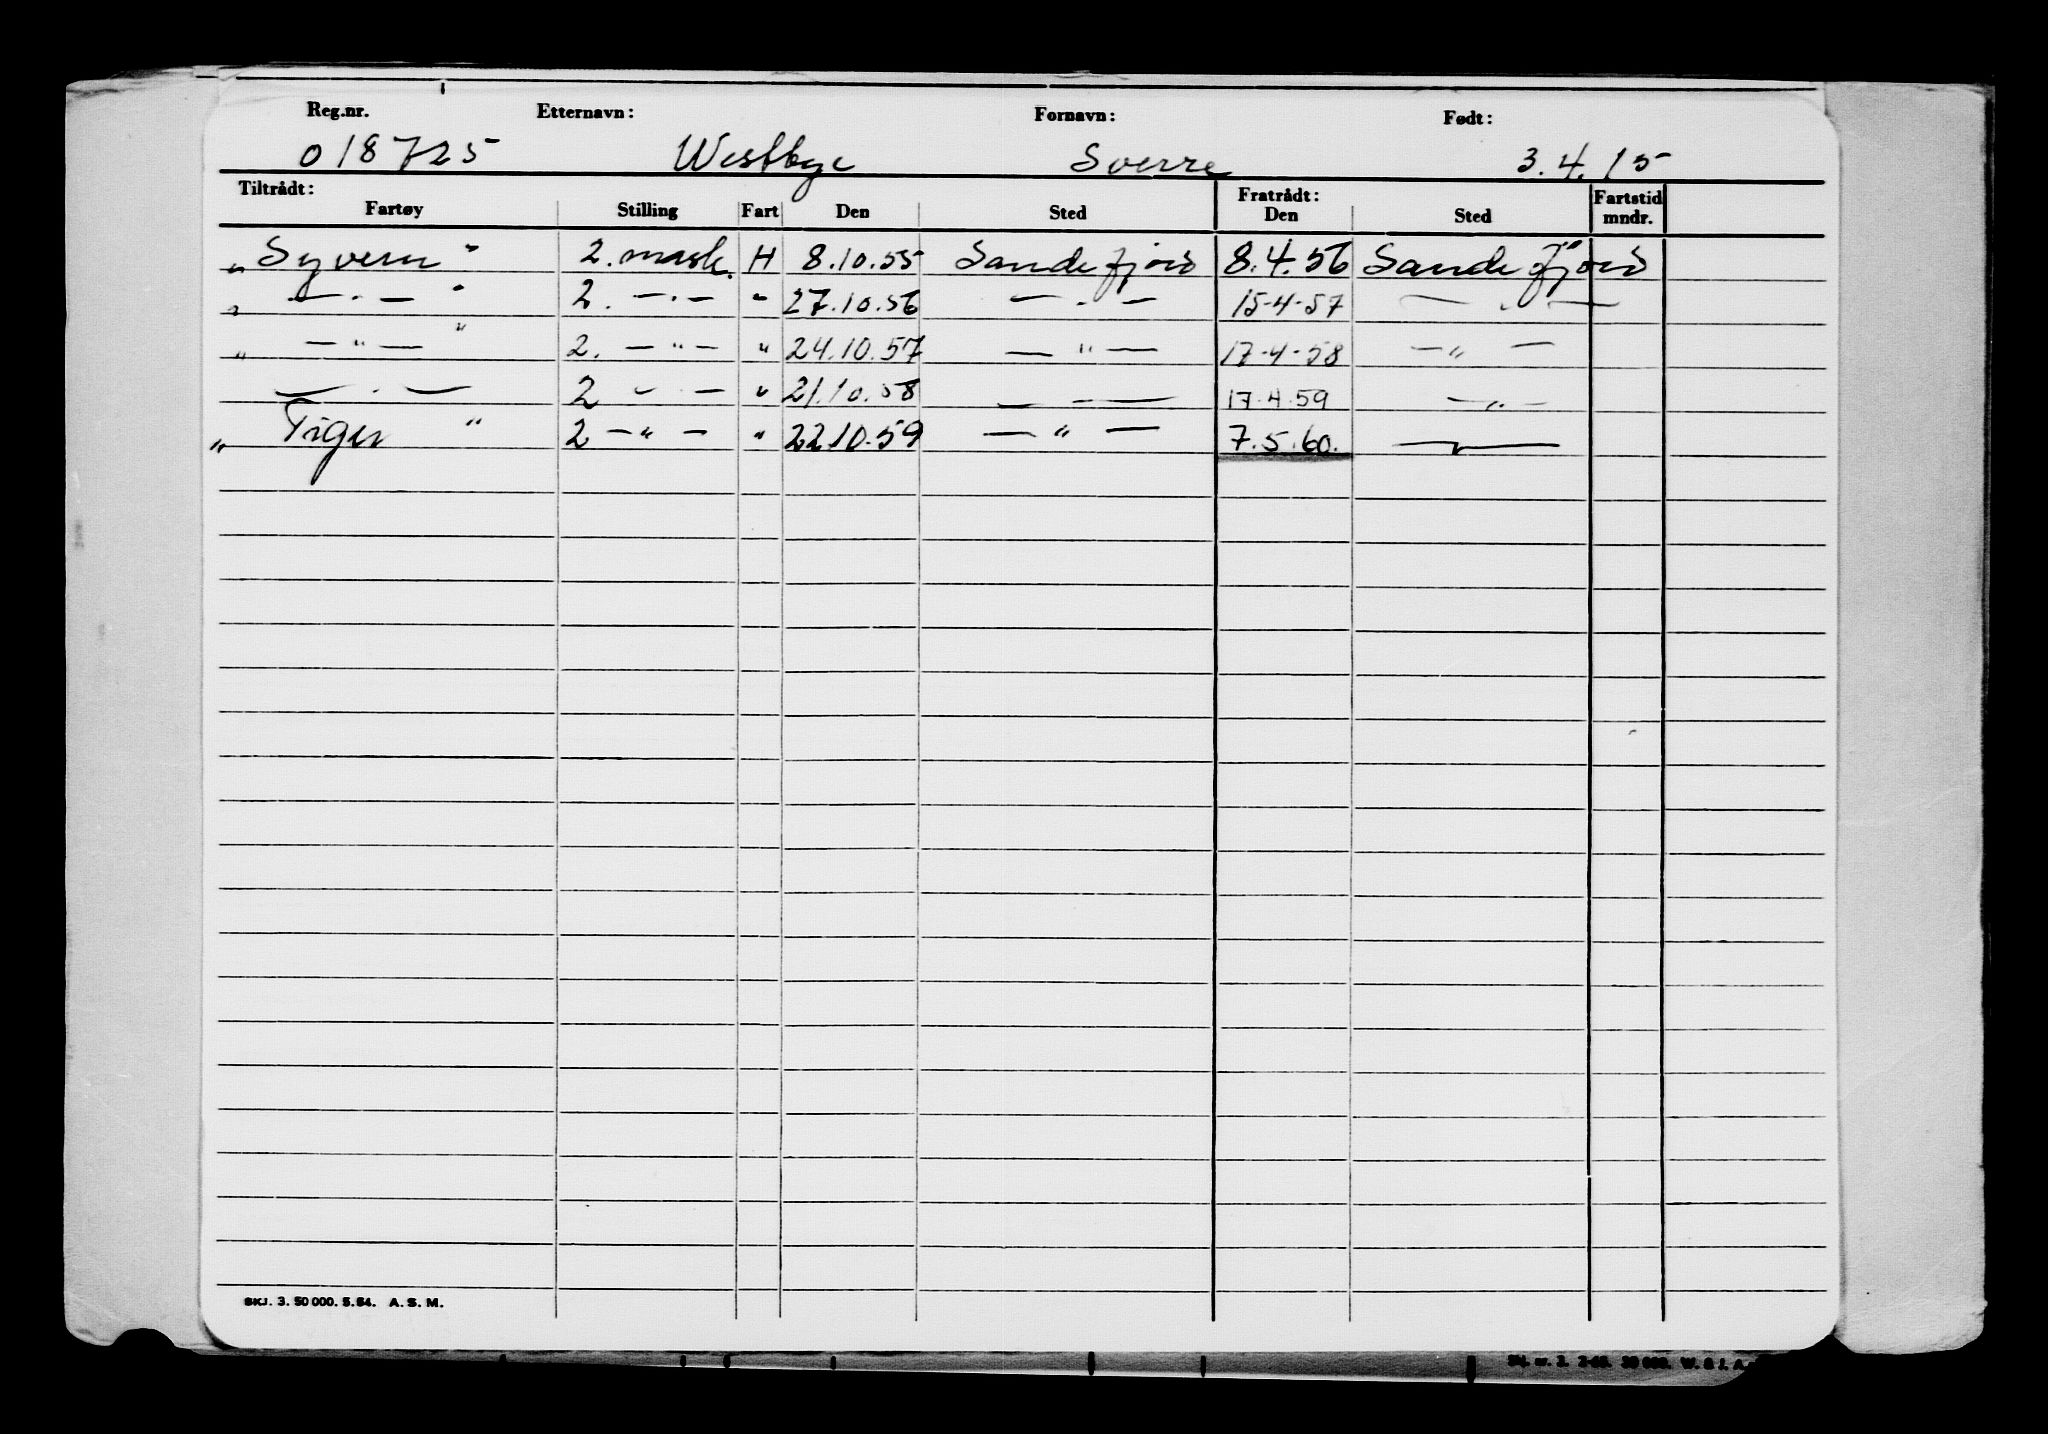 Reg.nr. Etternavn: Fornavn: Født:
018725 Westbye Sverre 3.4.15
Tiltrådt: Fratrådt:
Fartøy Stilling Fart Den Sted Den Sted Fartstid mndr.
„ Syvern " 2. mask. H 8.10.55 Sandefjord 8.4.56 Sandefjord
„ — " — " 2. — " — " 27.10.56 — " — 15-4-57 — " —
„ — " — " 2. — " — " 24.10.57 — " — 17-4-58 — " —
— " — 2 — " — " 21.10.58 — " — 17.4.59 — " —
„ Tiger " 2 — " — " 22.10.59 — " — 7.5.60. — " —
SKJ. 3. 50 000. 5.54. A. S. M.